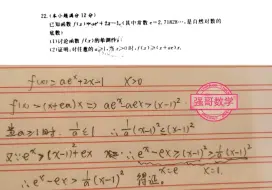 22.(本小题满分12分)
已知函数f(x)=ae^x+2x-1,(其中常数e=2.71828…,是自然对数的
底数)
(1)讨论函数f(x)的单调性;
(2)证明:对任意的a≥1,当x>0时,f(x)≥(x+ae)x.
f(x)=ae^x+2x-1 x>0
f(x)≥(x+ea)x ⇒ ae^x-aex≥(x-1)^2
当a≥1时, 1/a≤1 ∴1/a(x-1)^2≤(x-1)^2
强哥数学
又∵e^x≥(x-1)^2+ex ∴e^x-ex≥(x-1)^2≥1/a(x-1)^2
x=1.
∴e^x-ex≥1/a(x-1)^2 得证。